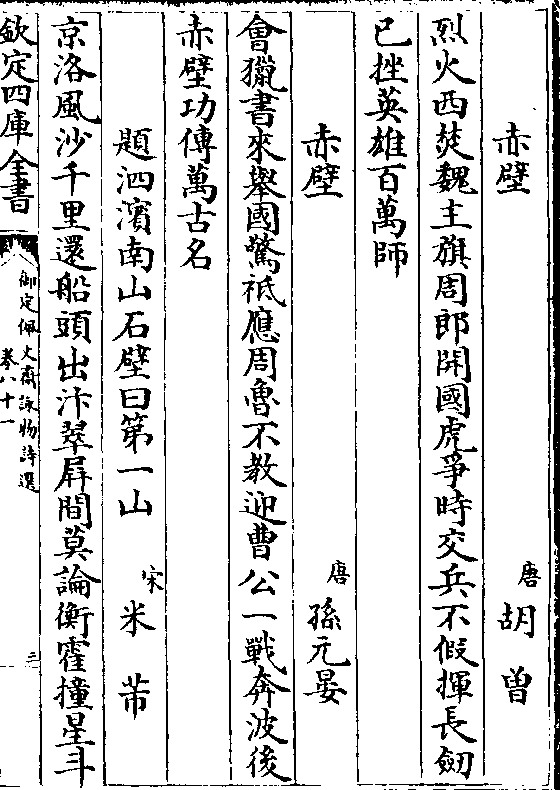 赤壁　唐 胡曾
烈火西焚魏主旗周郎開國虎爭時交兵不假揮長劒
已挫英雄百萬師
赤壁　唐 孫元晏
會獵書來舉國驚祗應周魯不教迎曹公一戰奔波後
赤壁功傳萬古名
題泗濱南山石壁曰第一山　宋 米芾
京洛風沙千里還船頭出汴翠屏間莫論衡霍撞星斗
欽定四庫全書
御定佩文齋詠物詩選
卷八十一
三